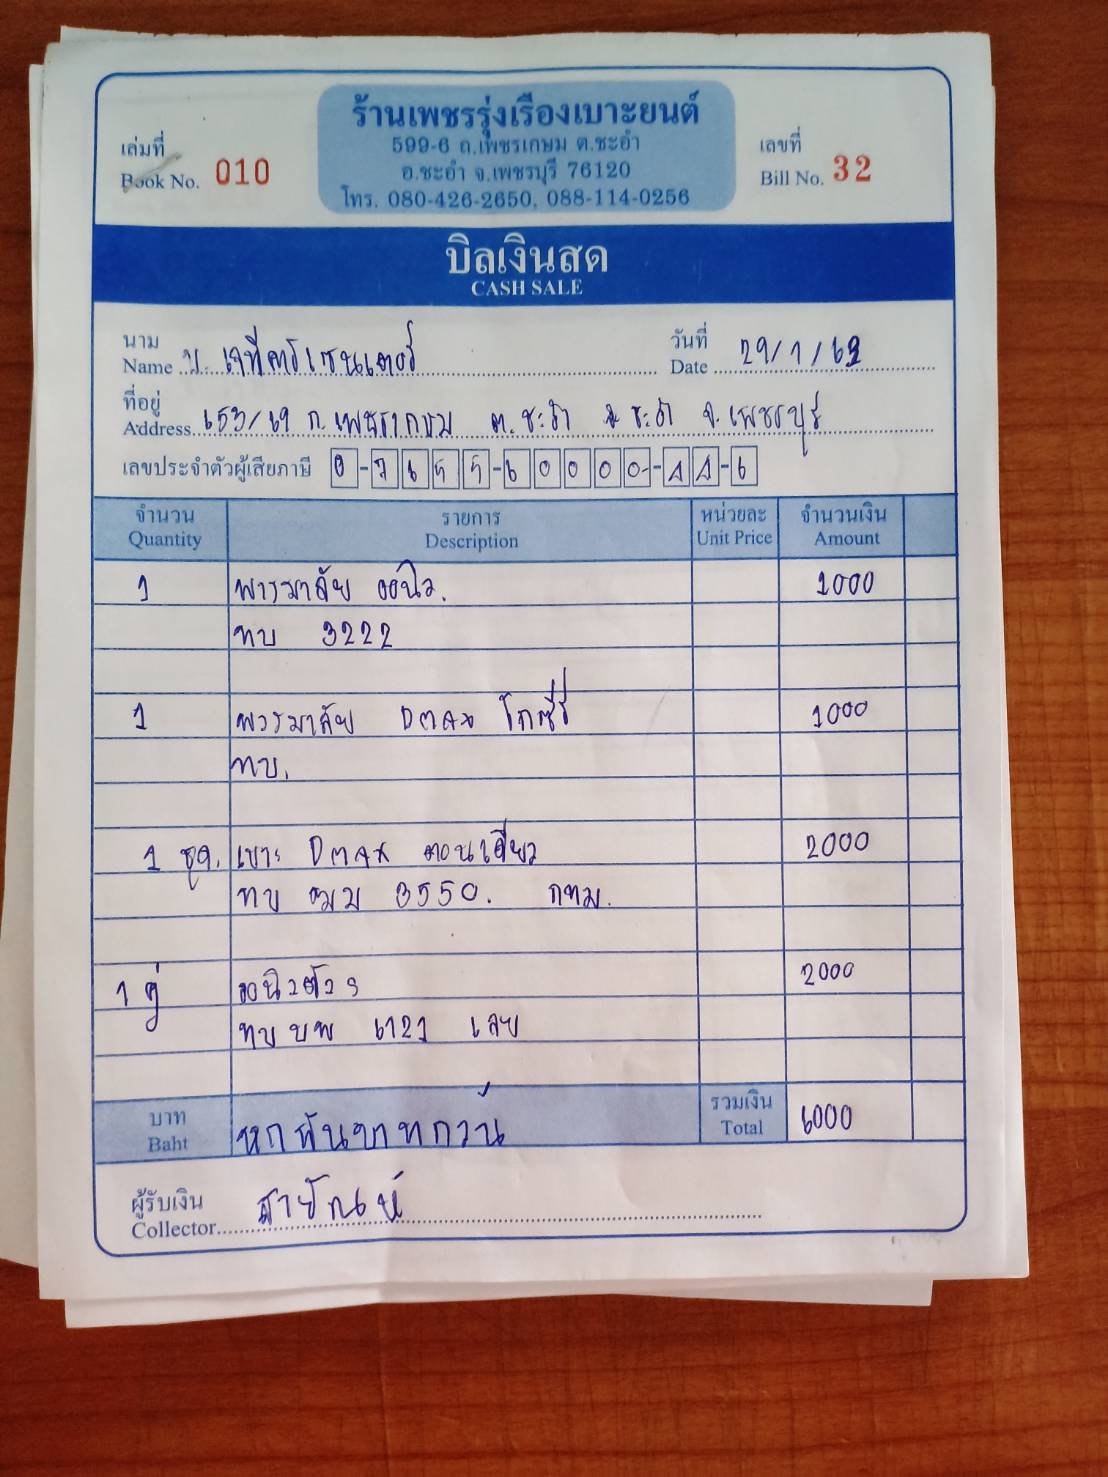 ร้านเพชรรุ่งเรืองเบาะยนต์
599-6 ถ.เพชรเกษม ต.ชะอำ
อ.ชะอำ จ.เพชรบุรี 76120
โทร. 080-426-2650, 088-114-0256
เล่มที่
Book No. 010
เลขที่
Bill No. 32
บิลเงินสด
CASH SALE
นาม
Name บ. เจพีคาร์เซนเตอร์
วันที่
Date 29/1/62
ที่อยู่
Address 653/69 ถ.เพชรเกษม ต.ชะอำ อ ชะอำ จ.เพชรบุรี
เลขประจำตัวผู้เสียภาษี 0-7655-60000-44-6
จำนวน รายการ หน่วยละ จำนวนเงิน
Quantity Description Unit Price Amount
1 พวงมาลัย 1000
ทบ 3222
1 พวงมาลัย Dmax 1000
ทบ.
1 ชุด. เบาะ Dmax ตอนเดียว 2000
ทบ ฒบ 3550. กทม.
1 คู่ 2000
ทบ บพ 6121 เลย
บาท หกพันบาทถ้วน รวมเงิน 6000
Baht Total
ผู้รับเงิน
Collector สายัณห์